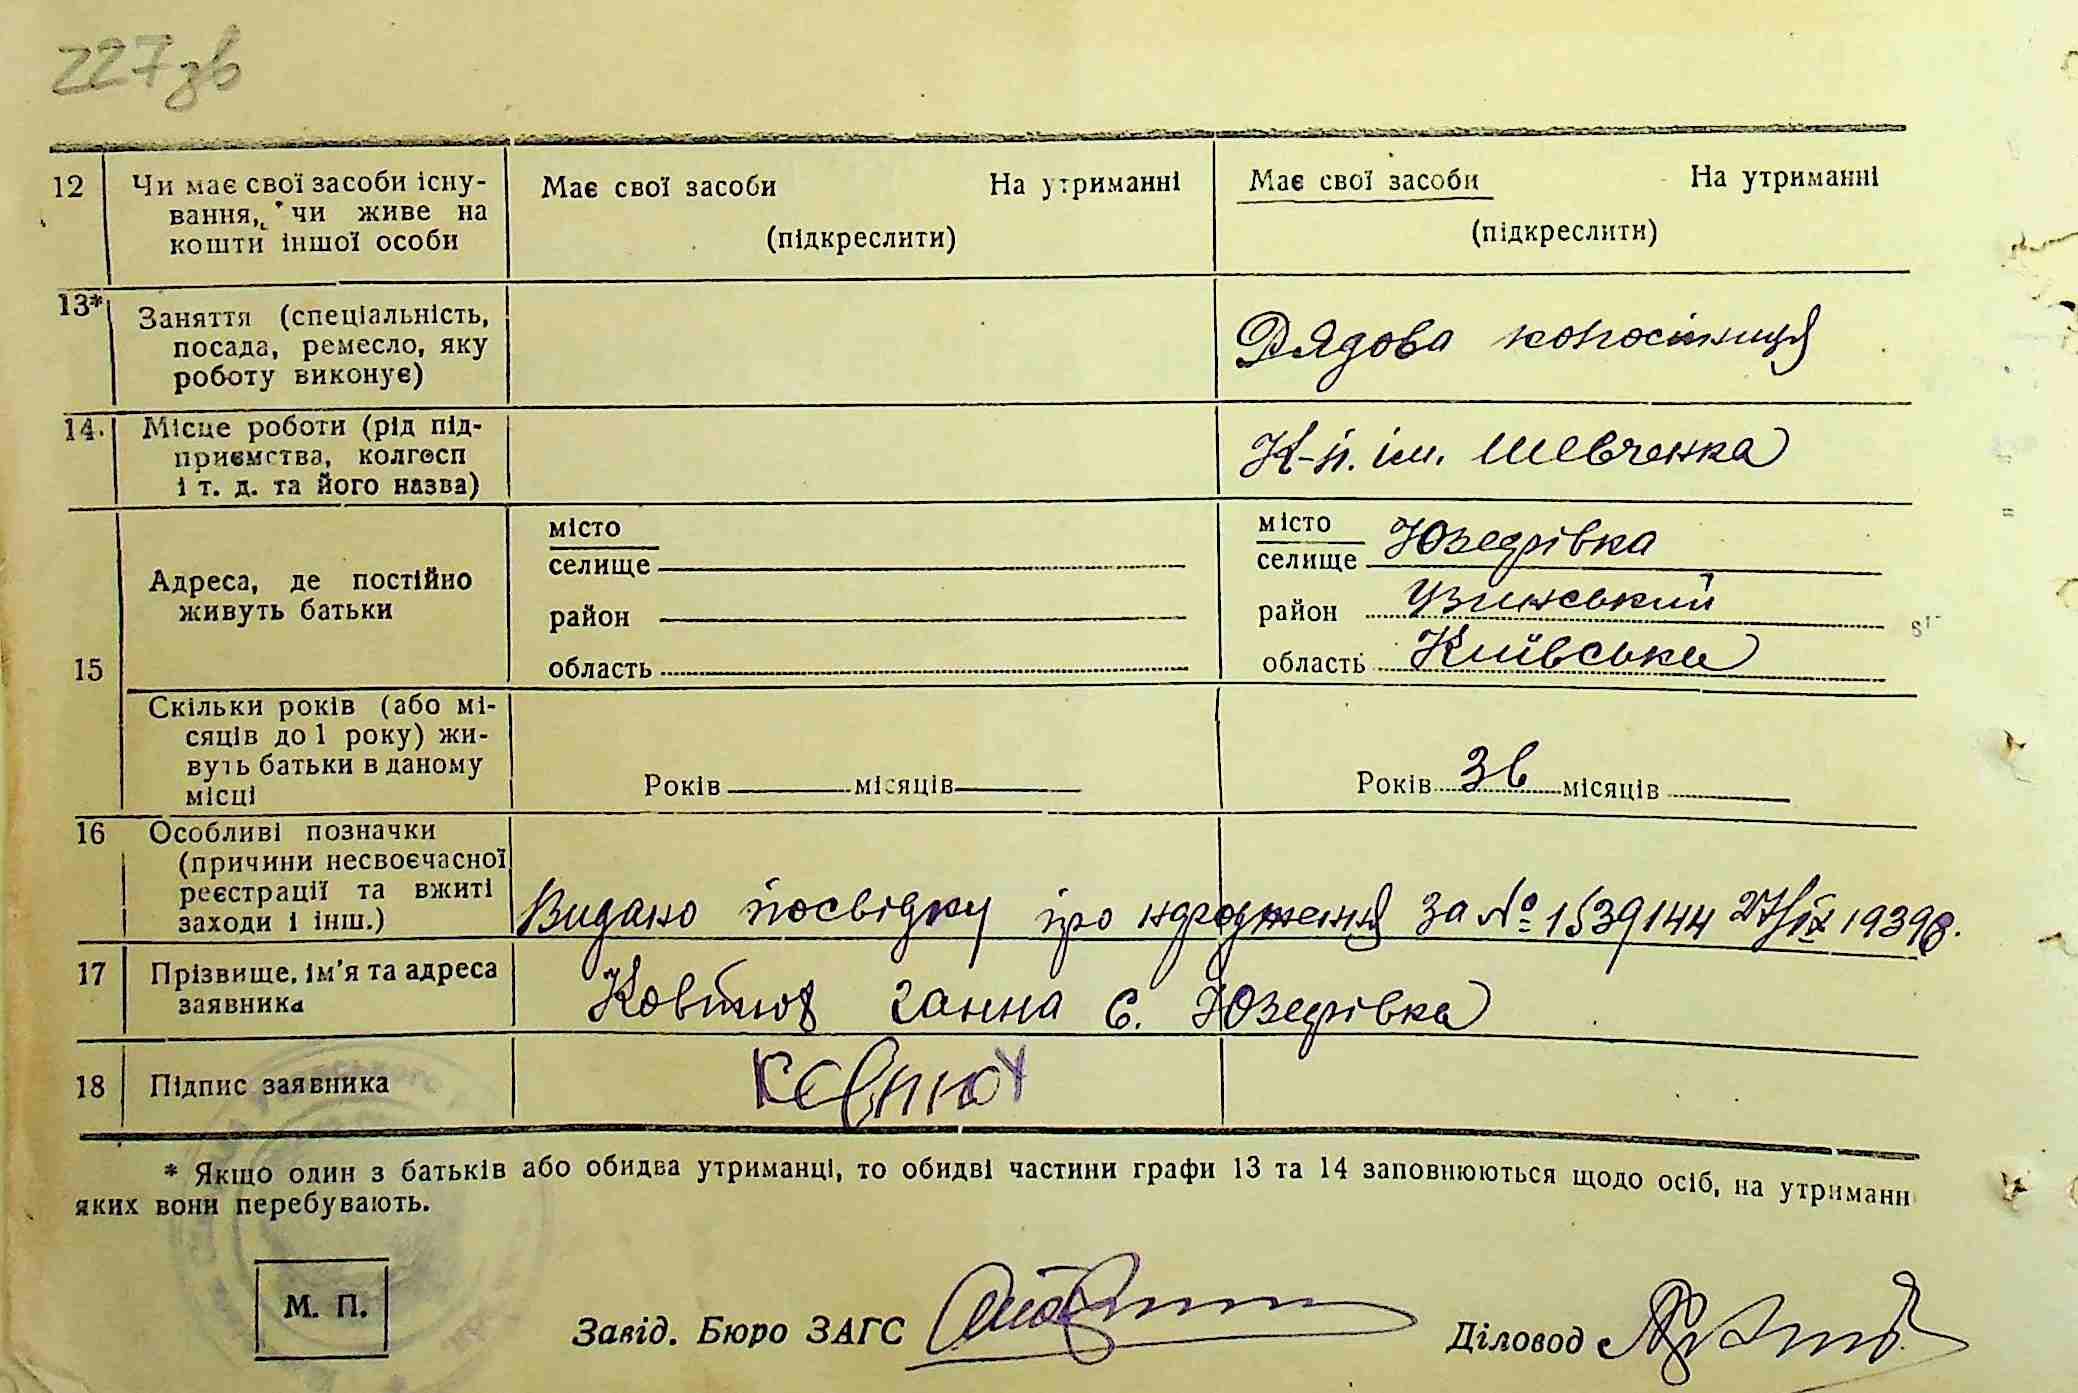 227зв
12 Чи має свої засоби існу- Має свої засоби На утриманні Має свої засоби На утриманні
вання, чи живе на
кошти іншої особи (підкреслити) (підкреслити)
13* Заняття (спеціальність,
посада, ремесло, яку Рядова
роботу виконує)
14. Місце роботи (рід під-
приємства, колгосп К-п. ім. Шевченка
і т. д. та його назва)
15 Адреса, де постійно
живуть батьки
місто місто
селище селище Юзефівка
район район Узинський
область область Київська
Скільки років (або мі-
сяців до 1 року) жи-
вуть батьки в даному
місці Років місяців Років 36 місяців
16 Особливі позначки
(причини несвоєчасної
реєстрації та вжиті
заходи і інш.) Видано посвідку про народження за № 1539144 27/IX 1939р.
17 Прізвище, ім'я та адреса
заявника Ковтюх Ганна Є. Юзефівка
18 Підпис заявника
* Якщо один з батьків або обидва утриманці, то обидві частини графи 13 та 14 заповнюються щодо осіб, на утриманн
яких вони перебувають.
М. П.
Завід. Бюро ЗАГС Діловод